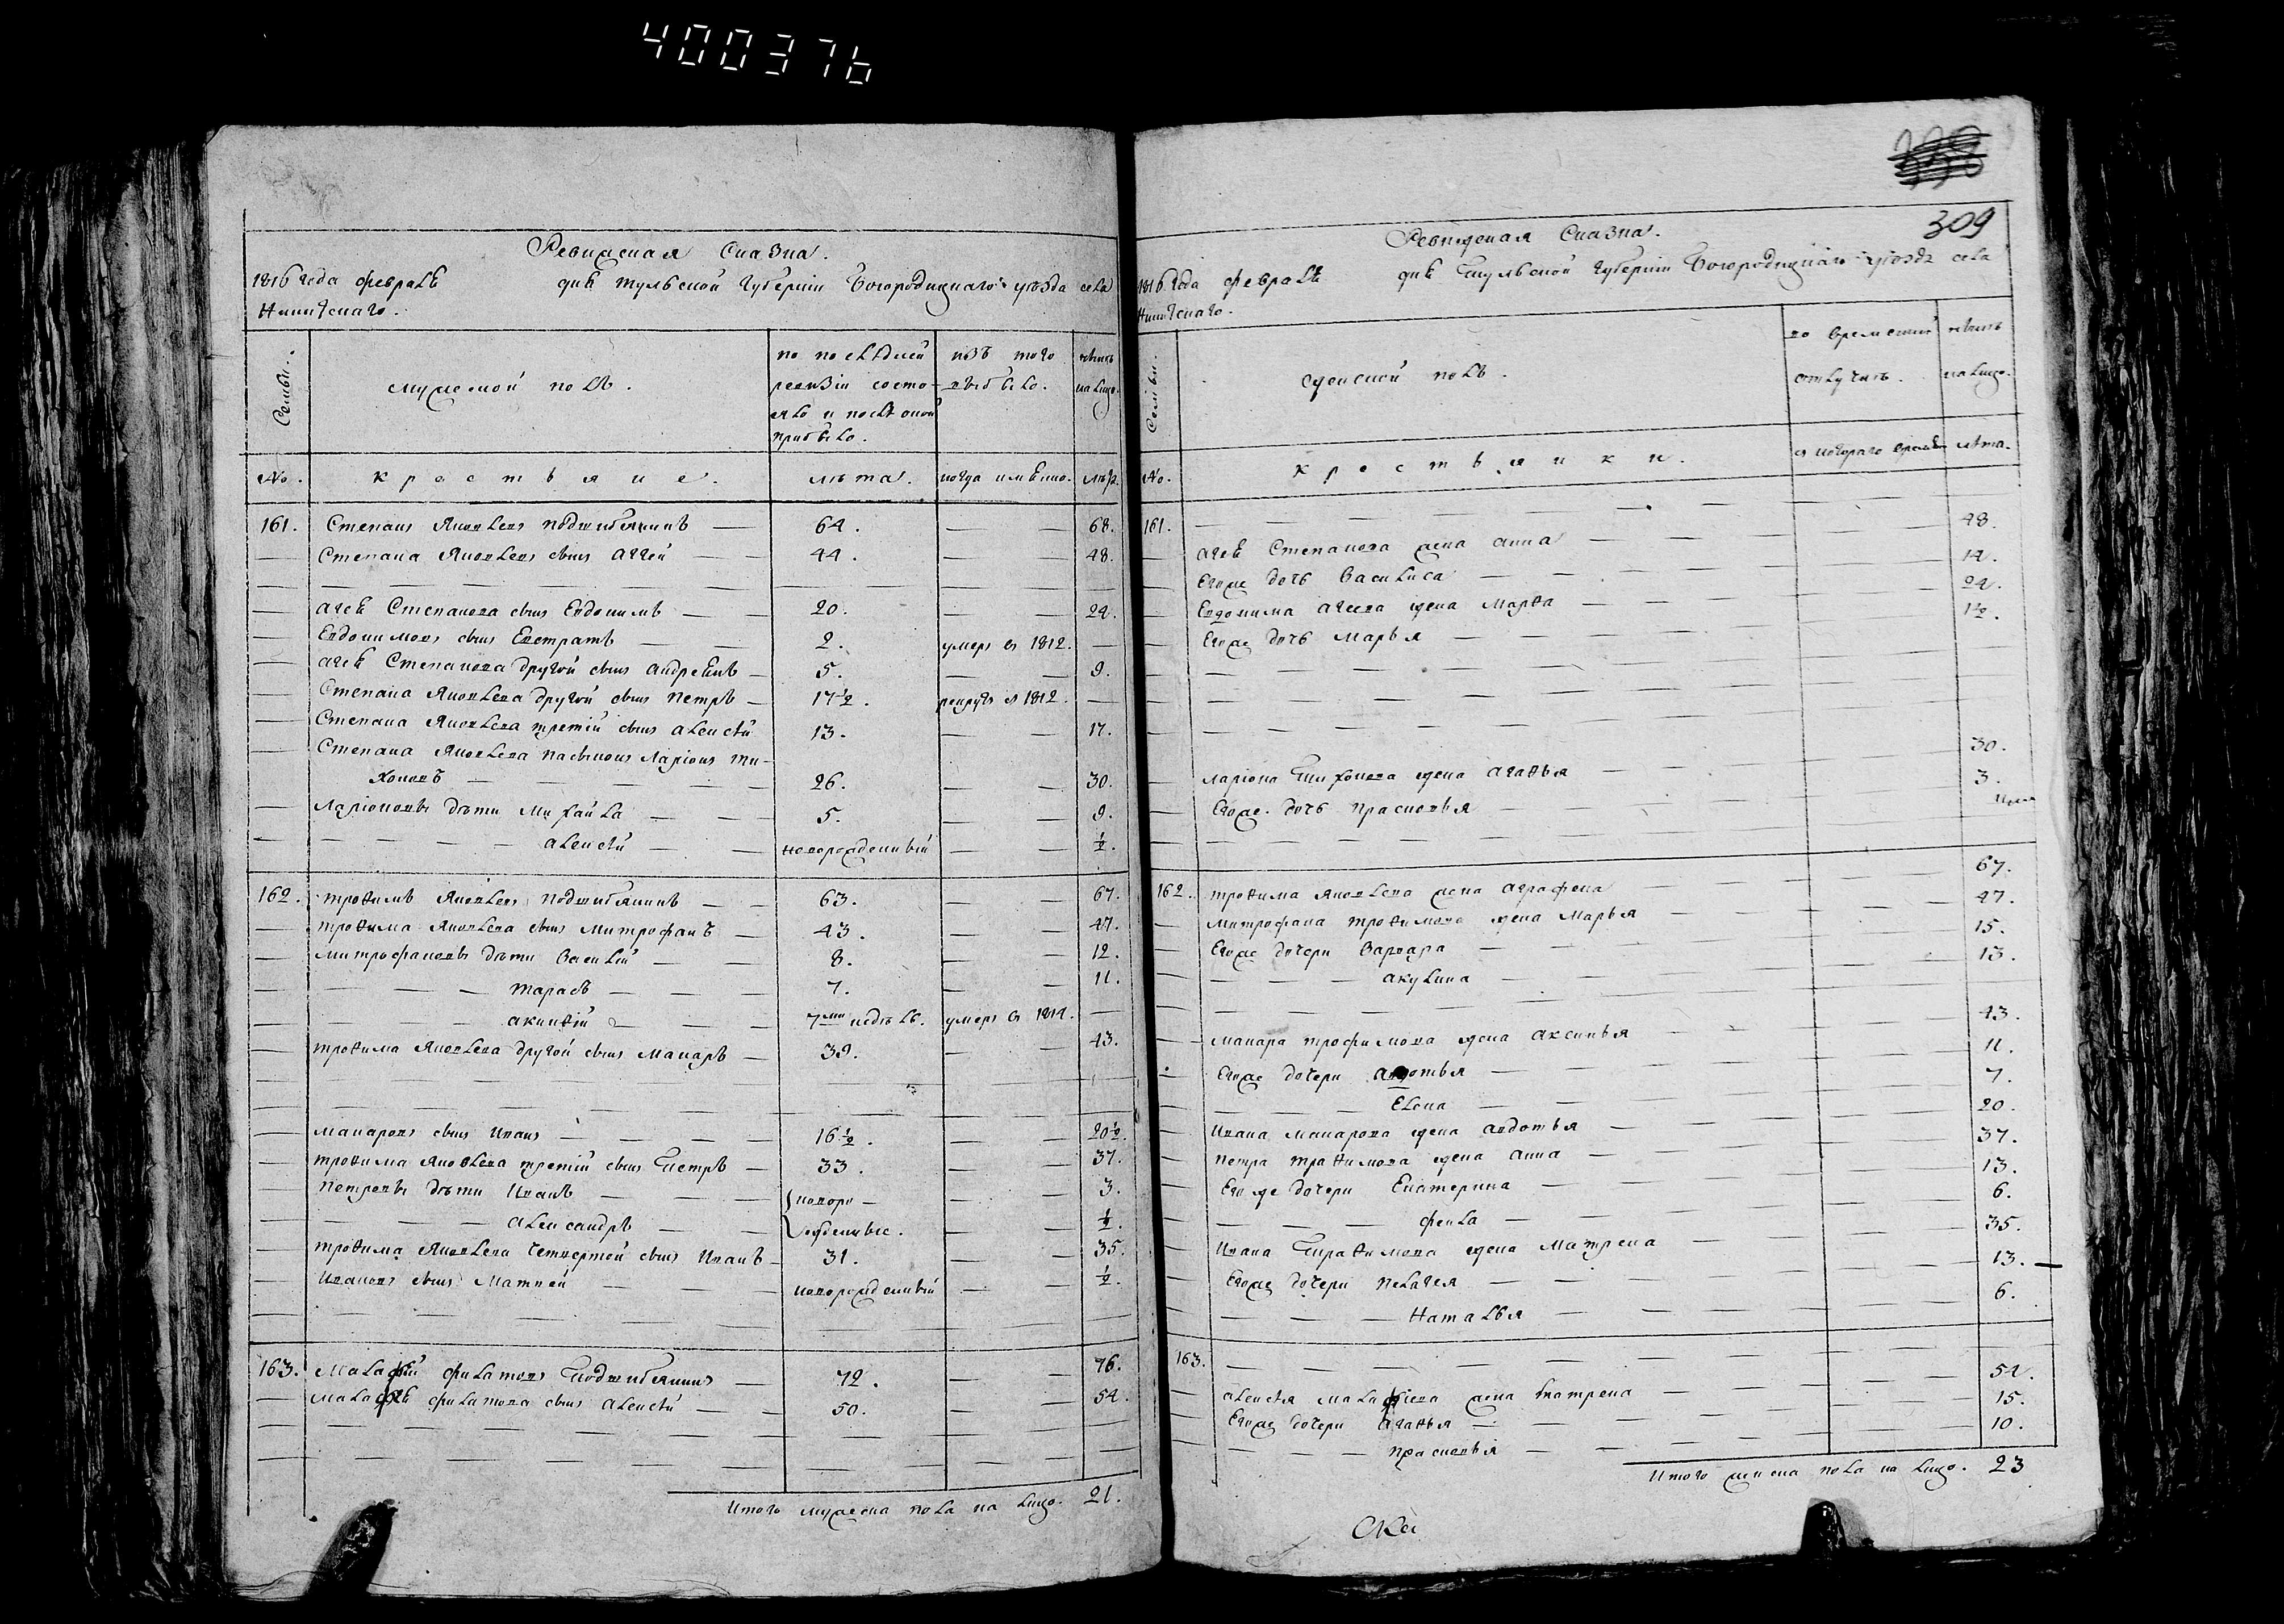 400376
309
Ревижская Сказка.
1816 года февраля дня тульской губернии Богородицкаго уезда села
Никитскаго.
Семьи.
мужеской полъ.
по последней ревизiи состояло и после оной прибыло.
изъ того выбыло.
ныне на лицо.
№. крестьяне. лѣта. когда имѣнно. лѣта.
161. Степанъ Яковлевъ Подшибякинъ — 64. — — 68.
— Степана Яковлева сынъ Аггей — — 44. — — 48.
— Агея Степанова сынъ Евдокимъ — — 20. — — 24.
— Евдокимовъ сынъ Евстратъ — — 2. умеръ въ 1812. —
— Агея Степанова другой сынъ Андреянъ — 5. — — 9.
— Степана Яковлева другой сынъ Петръ — 17½. рекрутъ въ 1812. —
— Степана Яковлева третiй сынъ Алексѣй 13. — — 17.
— Степана Яковлева пасынокъ Ларiонъ Ти-
хоновъ — — — — 26. — — 30.
— Ларiоновы дѣти Михайла — — 5. — — 9.
— — — — — Алексѣй — — новорожденный — — ½.
162. Трофимъ Яковлевъ Подшибякинъ — — 63. — — 67.
— Трофима Яковлева сынъ Митрофанъ — 43. — — 47.
— Митрофановы дѣти Василiй — — 8. — — 12.
— — — — Тарасъ — — — 7. — — 11.
— — — — Акинфiй — — — 7ми недѣль. умеръ въ 1814. —
— Трофима Яковлева другой сынъ Макаръ — 39. — — 43.
— Макаровъ сынъ Иванъ — — — — 16½. — — 20½.
— Трофима Яковлева третiй сынъ Петръ — 33. — — 37.
— Петровы дѣти Иванъ — — — новоро- — — 3.
— — — — Александръ — — жденные. — — ½.
— Трофима Яковлева четвертой сынъ Иванъ — 31. — — 35.
— Ивановъ сынъ Матвей — — — новорожденный — ½.
163. Малафѣй Филатовъ Подшибякинъ — 72. — — 76.
— Малафѣя Филатова сынъ Алексѣй — — 50. — — 54.
Итого мужеска пола на лицо. 21.
Ревижская Сказка.
1816 года февраля дня Тульской губернiи Богородицкаго уезда села
Никитскаго.
Семьи.
женской полъ.
во временной отлучкѣ.
ныне на лицо.
№. крестьянки. съ котораго времени лѣта.
161.
— Агея Степанова жена Анна — — — 48.
— Егоже дочь Василиса — — — 14.
— Евдокима Агеева жена Марфа — — — 24.
— Егоже дочь Марья — — — 1½.
— Ларiона Тихонова жена Агафья — — — 30.
— Егоже дочь Прасковья — — — 3.
162. Трофима Яковлева жена Аграфена — — — 67.
— Митрофана Трофимова жена Марья — — — 47.
— Егоже дочери Варвара — — — 15.
— — — — Акулина — — — 13.
— Макара Трофимова жена Аксинья — — — 43.
— Егоже дочери Авдотья — — — 11.
— — — — Елена — — — 7.
— Ивана Макарова жена Авдотья — — — 20.
— Петра Трафимова жена Анна — — — 37.
— Егоже дочери Екатерина — — — 13.
— — — — Фекла — — — 6.
— Ивана Трафимова жена Матрена — — — 35.
— Егоже дочери Пелагея — — — 13. —
— — — — Наталья — — — 6.
163.
— Алексѣя Малафiева жена Матрена — — — 54.
— Егоже дочери Агафья — — — 15.
— — — — Прасковья — — — 10.
Итого женска пола на лицо. 23